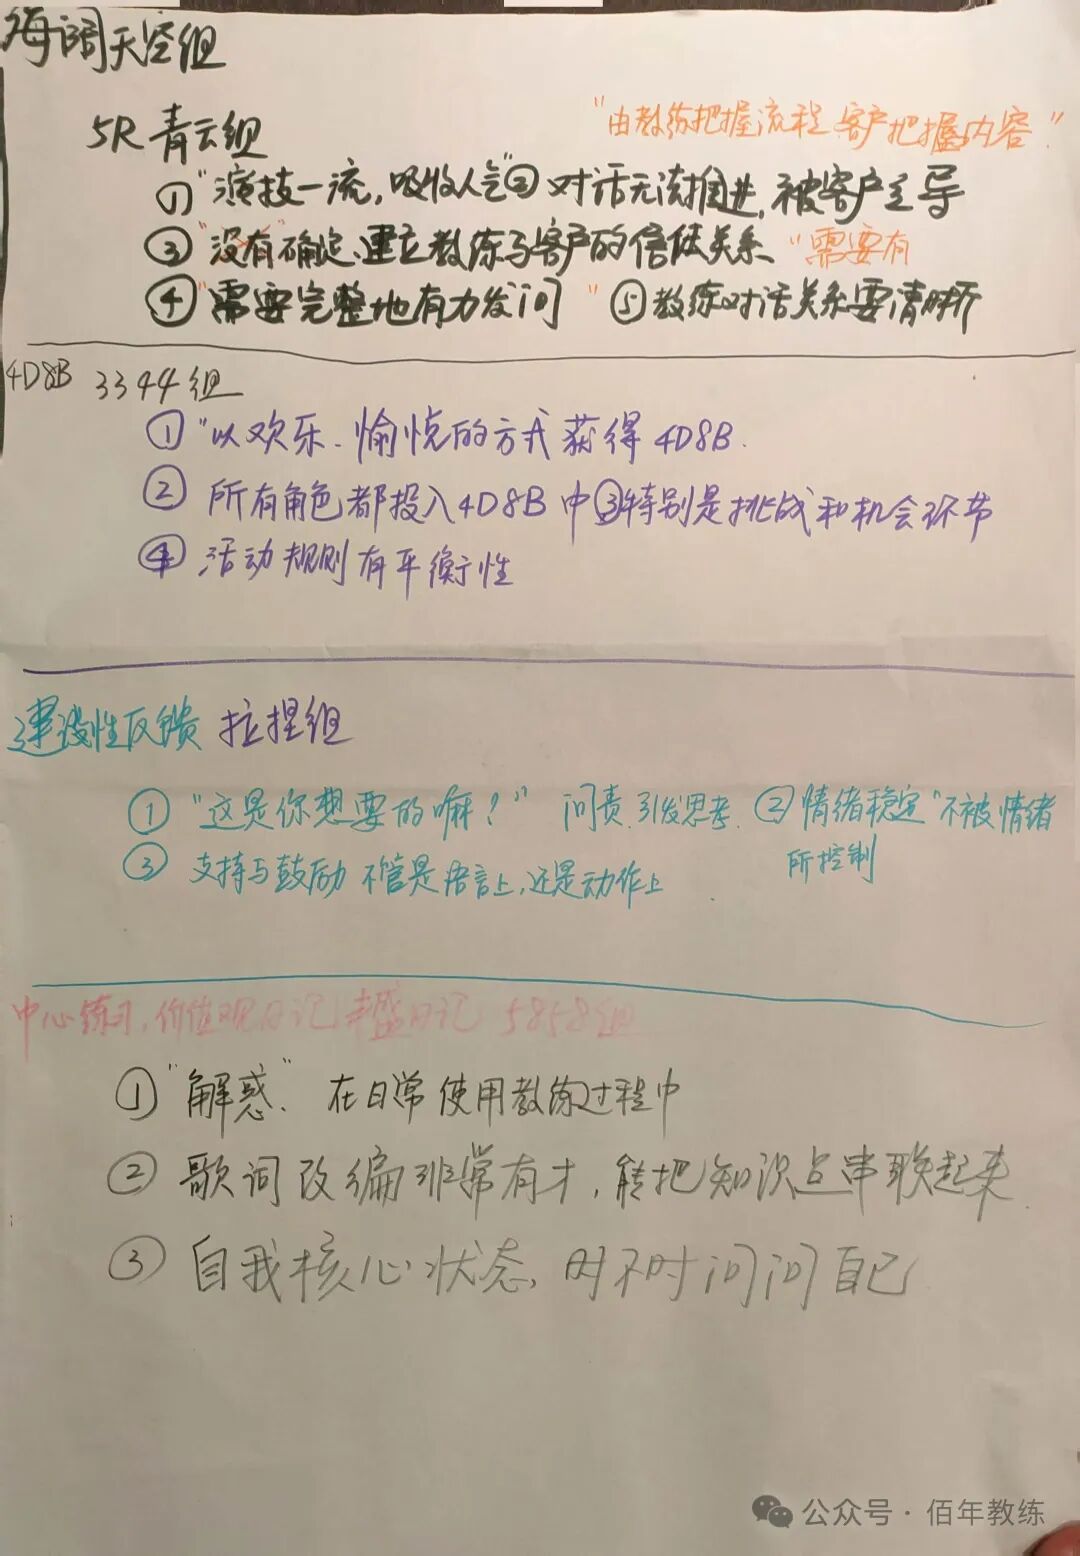 海阔天空组
5R 青云组
"由教练把握流程 客户把握内容"
① "演技一流,吸收人气" ② 对话无法推进,被客户主导
③ "没有"确定、建立教练与客户的信任关系 "需要有
④ "需要完整地有力发问" ⑤ 教练对话关系要清晰
4D8B 3344组
① "以欢乐、愉悦的方式获得4D8B.
② 所有角色都投入4D8B中 ③ 特别是挑战和机会环节
④ 活动规则有平衡性
建设性反馈 拉捏组
① "这是你想要的嘛?" 问责.引发思考. ② 情绪稳定"不被情绪
所控制
③ 支持与鼓励 不管是语言上,还是动作上
中心练习,价值观日记 丰盛日记 5858组
① "解惑" 在日常使用教练过程中
② 歌词改编非常有才,能把知识点串联起来
③ 自我核心状态,时不时问问自己
公众号·佰年教练